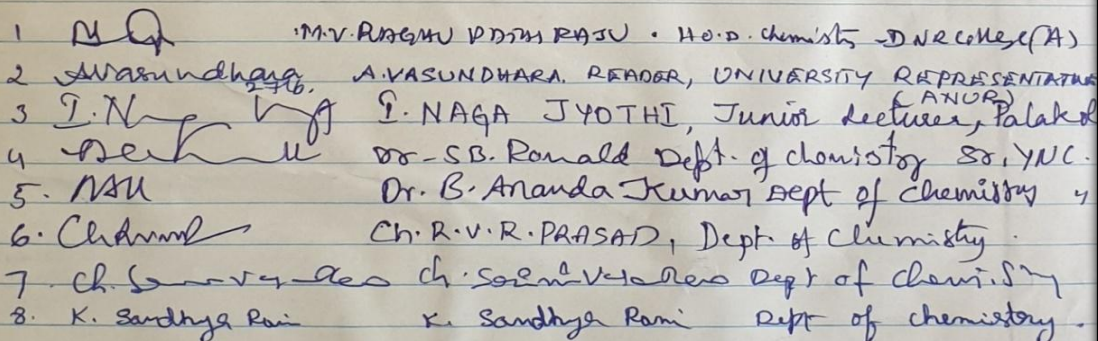 1 M.V. RAGHU PADMA RAJU . H.O.D. Chemistry DNR College (A)
2 AVasundhara 27/6. A.VASUNDHARA. READER, UNIVERSITY REPRESENTATIVE
(ANUR)
3 I.N I. NAGA JYOTHI, Junior Lecturer, Palakol
4 Dr. S.B. Ronald Dept. of chemistry Sr. YNC.
5. Dr. B. Ananda Kumar Dept of chemistry "
6. Ch. R.V.R. PRASAD, Dept. of Chemistry.
7. Ch. Ch. Dept of chemistry
8. K. Sandhya Rani K. Sandhya Rani Dept of chemistry.